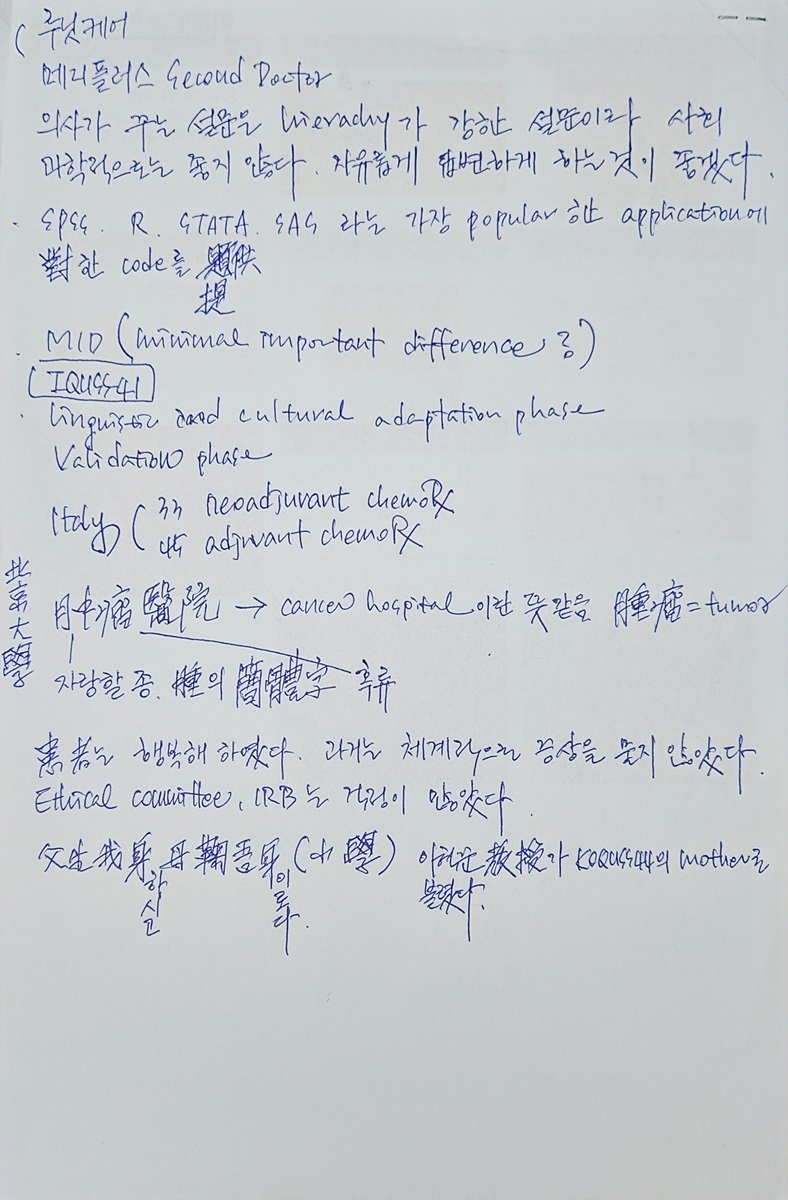 ( 루닛케어
메디플러스 Second Doctor
의사가 주는 설문은 hierachy가 강한 설문이라 사회
과학적으로는 좋지 않다. 자유롭게 답변하게 하는것이 좋겠다.
· SPSS. R. STATA. SAS 라는 가장 popular 한 application에
對한 code를 提供
· MID (minimal important difference, 중)
(IQUSS41
· linguistic and cultural adaptation phase
Validation phase
Italy ( 33 neoadjuvant chemoRx
45 adjuvant chemoRx
北京大學
肿瘤醫院 → cancer hospital 이란 뜻같음 腫瘤=tumor
자랑할 종. 腫의 簡體字 혹류
患者는 행복해 하였다. 과거는 체계적으로 증상을 묻지 않았다.
Ethical committee, IRB는 걱정이 많았다.
父生我身 母鞠吾身 (小學) 교수 教授가 KOQUSS44의 mother로
하시고 이로다. 불렸다.